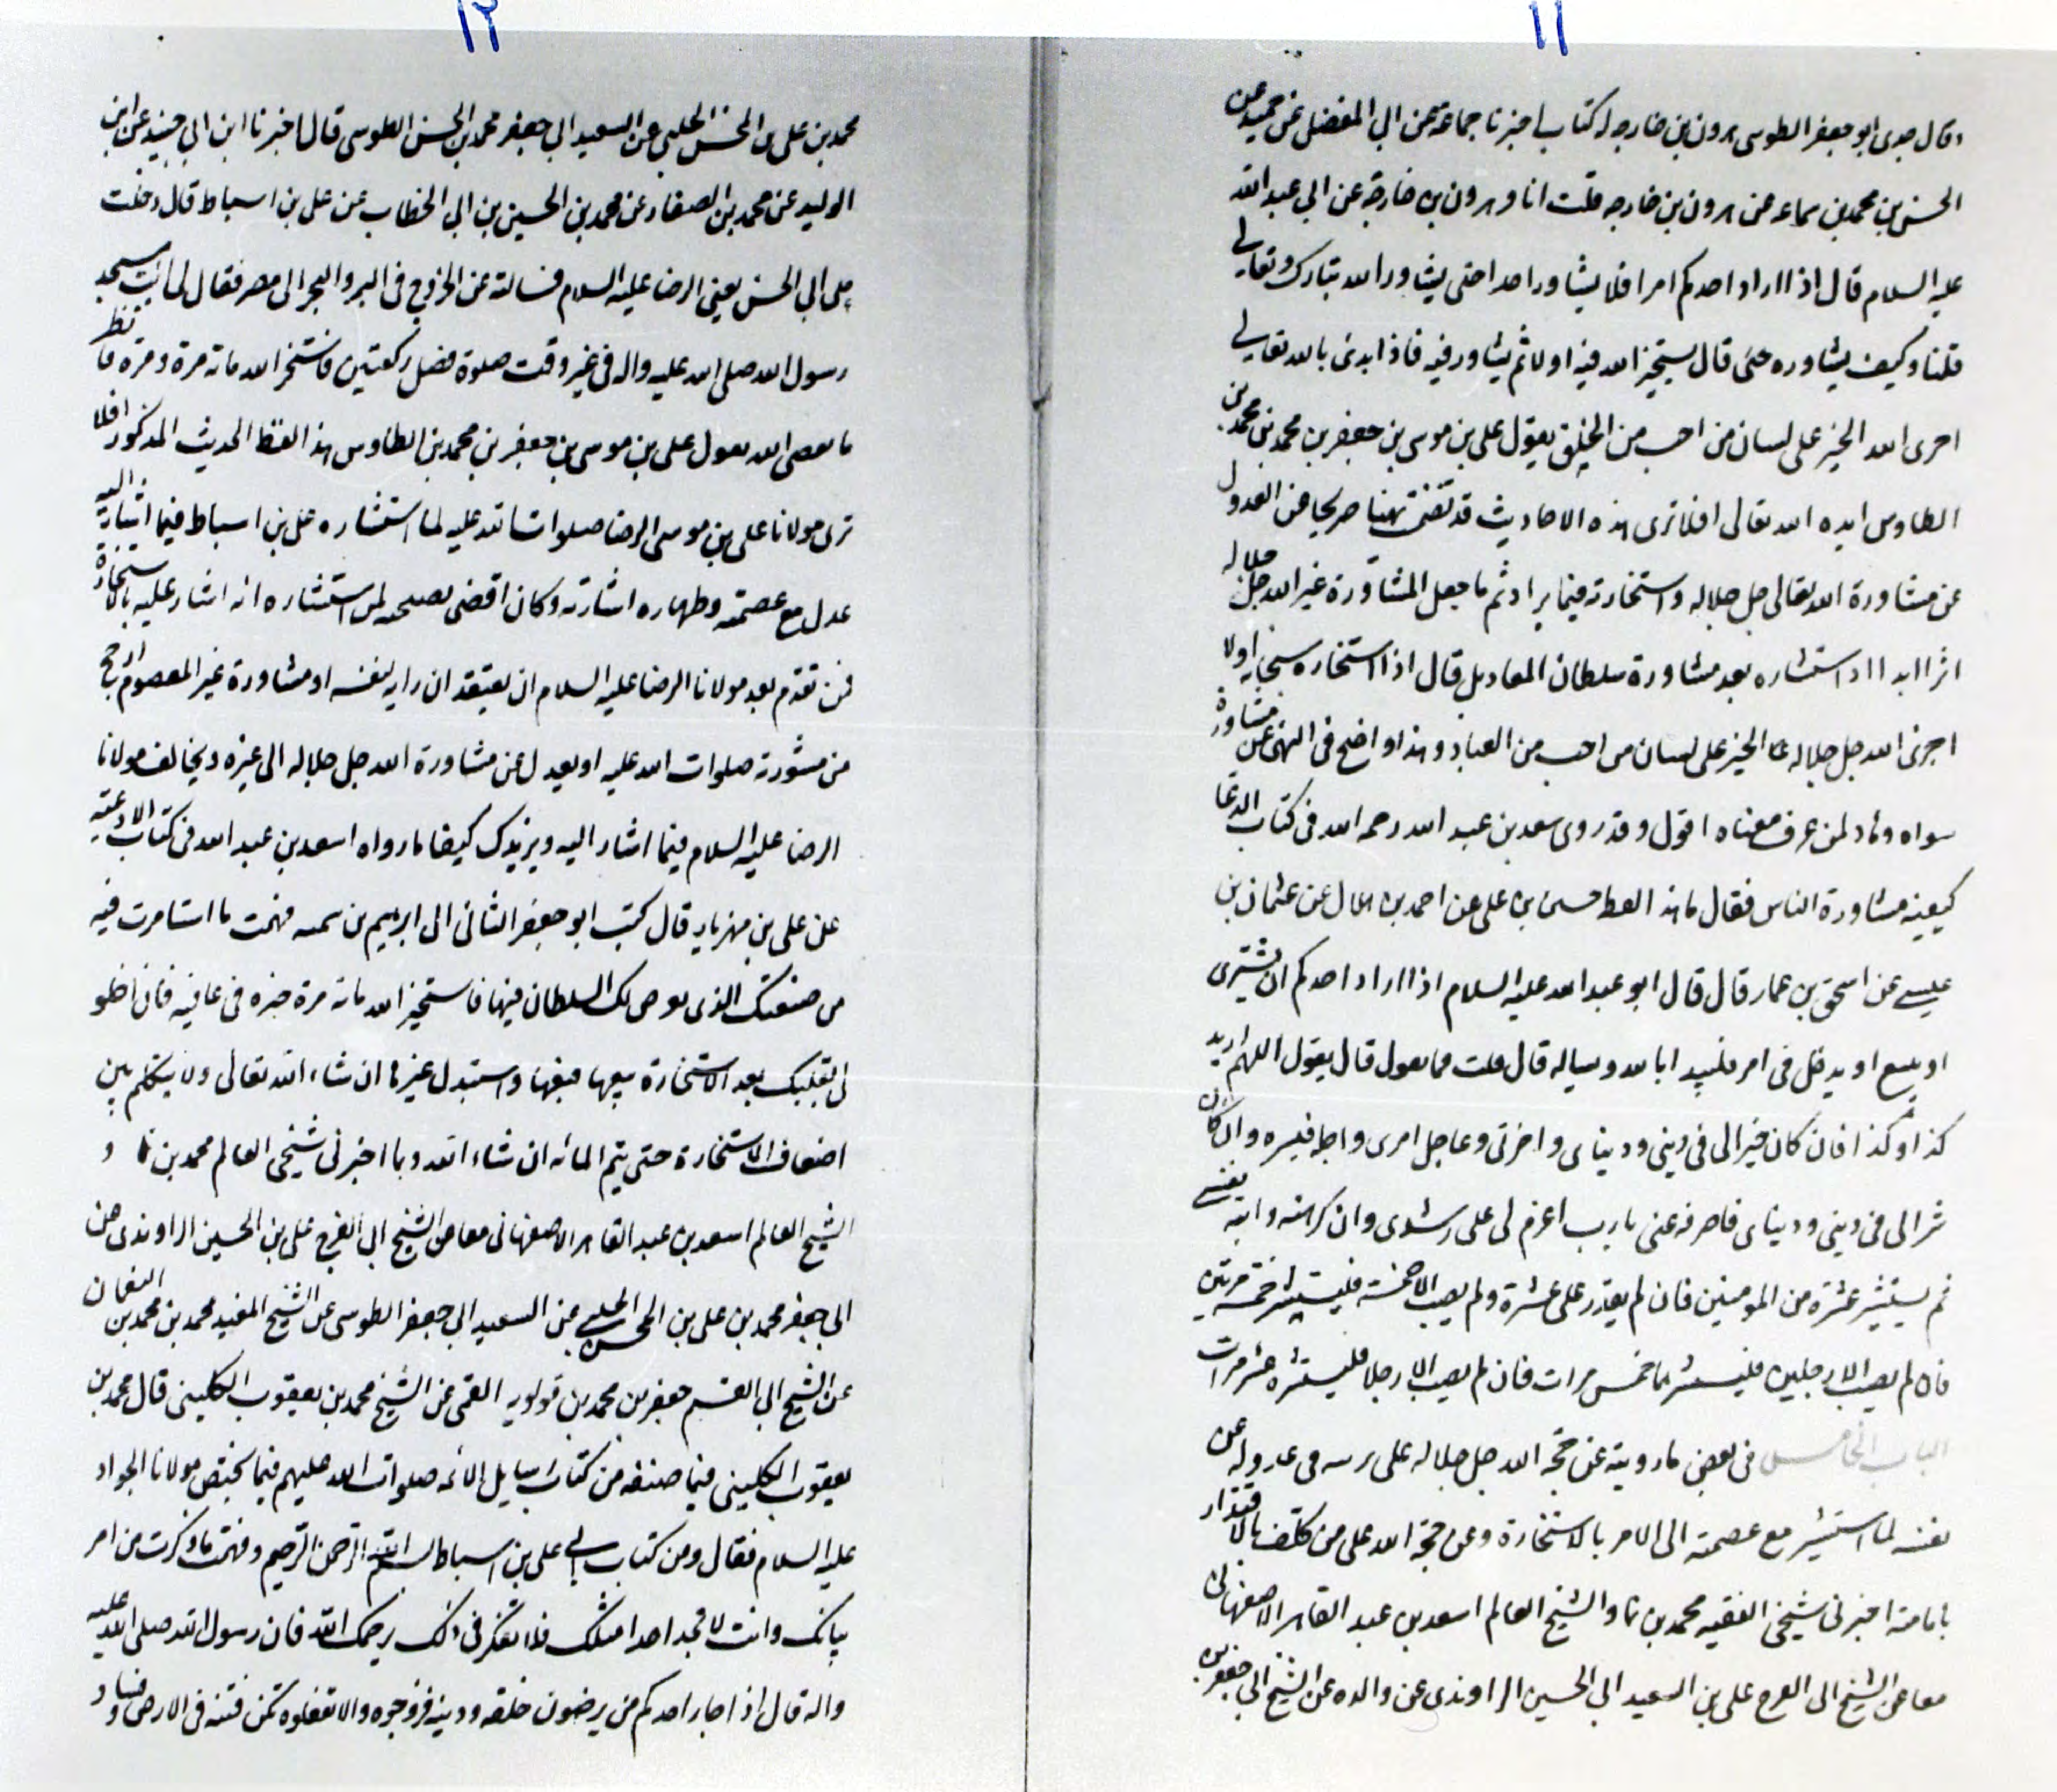 ١١
وقال جدى ابو جعفر الطوسى هرون بن خارجه له كتاب اخبرنا جماعة عن ابى المفضل عن حميد عن
الحسن بن محمد بن سماعه عن هرون بن خارجه قلت انا وهرون بن خارجة عن ابى عبد الله
عليه السلام قال اذا اراد احدكم امرا فلا يشاور احدا حتى يشاور الله تبارك وتعالى
قلنا وكيف يشاوره حتى قال يستخير الله فيه اولا ثم يشاور فيه فاذا ابدى بالله تعالى
اجرى الله الخير على لسان من احب من الخلق يقول على بن موسى بن جعفر بن محمد بن محمد بن
الطاوس ايده الله تعالى افلا ترى هذه الاحاديث قد تضمنت نهيا صريحا عن العدول
عن مشاورة الله تعالى جل جلاله واستخارته فيما يراد ثم ما جعل المشاورة غير الله جل جلاله
اثرا ابدا اذا استشاره بعد مشاورة سلطان المعاد بل قال اذا استخاره سبحانه اولا
اجرى الله جل جلاله الخير على لسان من احب من العباد وهذا واضح فى النهى عن مشاورة
سواه لمن عرف معناه اقول وقد روى سعد بن عبد الله رحمه الله فى كتاب الدعا
كيفيه مشاورة الناس فقال ما هذا لفظه حسن بن على عن احمد بن هلال عن عثمان بن
عيسى عن اسحق بن عمار قال قال ابو عبد الله عليه السلام اذا اراد احدكم ان يشترى
او يبيع او يدخل فى امر فليبدا بالله ويساله قال قلت فما يقول قال يقول اللهم اريد
كذا وكذا فان كان خيرا لى فى دينى ودنياى واخرتى وعاجل امرى واجله فيسره وان كان
شرا لى فى دينى ودنياى فاصرفه عنى يا رب اعزم لى على رشدى وان كرهته وابته نفسى
ثم يستشير عشرة من المومنين فان لم يقدر على عشرة ولم يصب الا خمسة فليستشر خمسة مرتين
فان لم يصب الا رجلين فليستشرهما خمس مرات فان لم يصب الا رجلا فليستشره عشر مرات
الباب الخامس فى بعض ما رويته عن حجة الله جل جلاله على بريته فى عدوله عن
نفسه لما استشير مع عصمته الى الامر بالاستخارة وعن حجة الله على من كلف بالاقتدار
بامامته اخبرنى شيخى الفقيه محمد بن نما والشيخ العالم اسعد بن عبد القاهر الاصفهانى
معا عن الشيخ ابى الفرج على بن السعيد ابى الحسين الراوندى عن والده عن الشيخ ابى جعفر بن
١٢
محمد بن على بن المحسن الحلبى عن السعيد ابى جعفر محمد بن الحسن الطوسى قال اخبرنا ابن ابى جيد عن ابن
الوليد عن محمد بن الصفار عن محمد بن الحسين بن ابى الخطاب عن على بن اسباط قال دخلت
على ابى الحسن يعنى الرضا عليه السلام فسالته عن الخروج فى البر والبحر الى مصر فقال لى ائت مسجد
رسول الله صلى الله عليه واله فى غير وقت صلوة فصل ركعتين واستخر الله مائة مرة ومرة فانظر
ما يقضى الله يقول على بن موسى بن جعفر بن محمد بن الطاوس هذا لفظ الحديث المذكور افلا
ترى مولانا على بن موسى الرضا صلوات الله عليه لما استشاره على بن اسباط فيما اشار اليه
عدل مع عصمته وطهاره اشارته وكان اقصى نصيحه لمن استشاره انه اشار عليه بالاستخارة
فمن تقدم بعد مولانا الرضا عليه السلام ان يعتقد ان رايه لنفسه او مشاورة غير المعصوم ارجح
من مشورته صلوات الله عليه او يعدل عن مشاورة الله جل جلاله الى غيره ويخالف مولانا
الرضا عليه السلام فيما اشار اليه ويزيدك كشفا ما رواه اسعد بن عبد الله فى كتاب الادعيه
عن على بن مهزيار قال كتب ابو جعفر الثانى الى ابرهيم بن شيبه فهمت ما استامرت فيه
من ضيعتك الذى تعرض لك السلطان فيها فاستخير الله مائه مرة خيره فى عافيه فان احلو
لى بقلبك بعد الاستخارة بيعها فبعها واستبدل غيرها ان شاء الله تعالى ولا يتكلم بين
اضعاف الاستخارة حتى يتم المائه ان شاء الله وبما اخبرنى شيخى العالم محمد بن نما و
الشيخ العالم اسعد بن عبد القاهر الاصفهانى معا عن الشيخ ابى الفرج على بن الحسين الراوندى عن
ابى جعفر محمد بن على بن المحسن الحلبى عن السعيد ابى جعفر الطوسى عن الشيخ المفيد محمد بن محمد بن النعمان
عن الشيخ ابى القسم جعفر بن محمد بن قولويه القمى عن الشيخ محمد بن يعقوب الكلينى قال محمد بن
يعقوب الكلينى فيما صنفه من كتاب رسايل الائمه صلوات الله عليهم فيما يختص مولانا الجواد
عليه السلام فقال ومن كتاب الى على بن اسباط بسم الله الرحمن الرحيم وفهمت ما ذكرت من امر
بناتك وانت لا تجد احدا مثلك فلا تفكر فى ذلك رحمك الله فان رسول الله صلى الله عليه
واله قال اذا جاء احدكم من يرضون خلقه ودينه فزوجوه والا تفعلوه تكن فتنه فى الارض وفساد